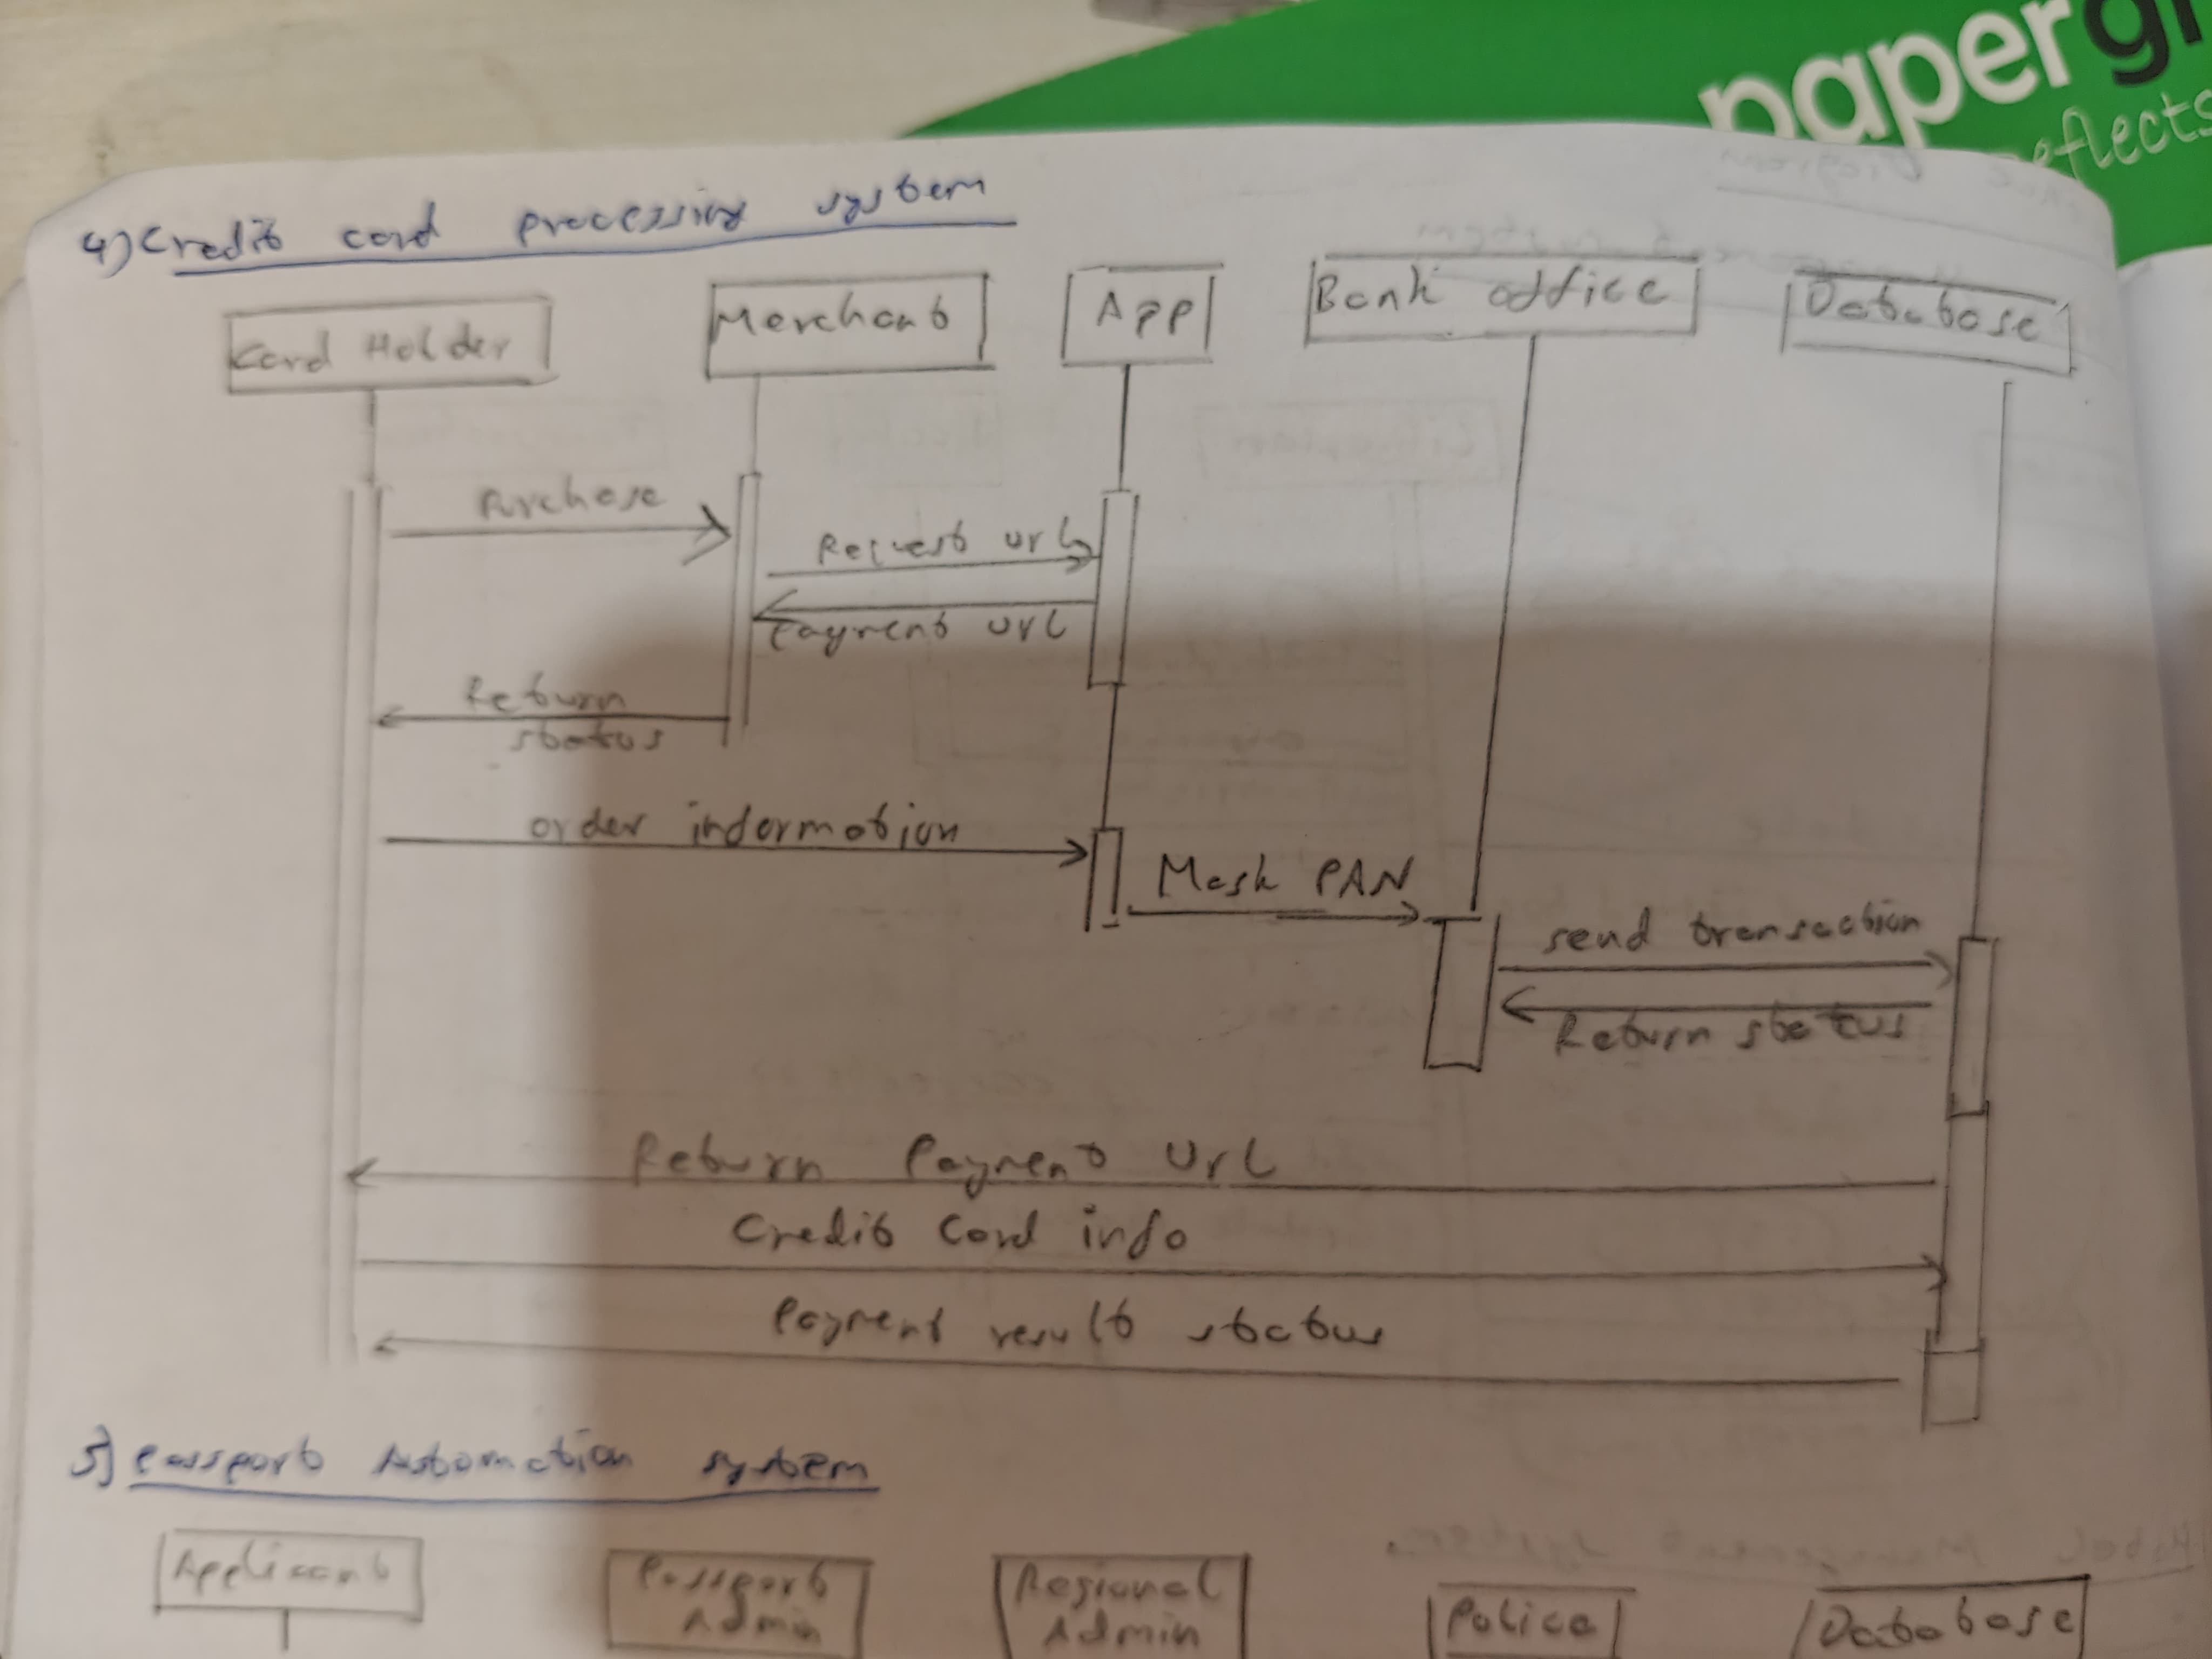 paper
reflects
4) Credit card processing system
Card Holder
Merchant
App
Bank office
Database
Purchase
Request url
Payment url
Return
status
order information
Mask PAN
send transaction
Return status
Return Payment Url
Credit Card info
Payment result status
5) Passport Automation system
Applicant
Passport
Admin
Regional
Admin
Police
Database